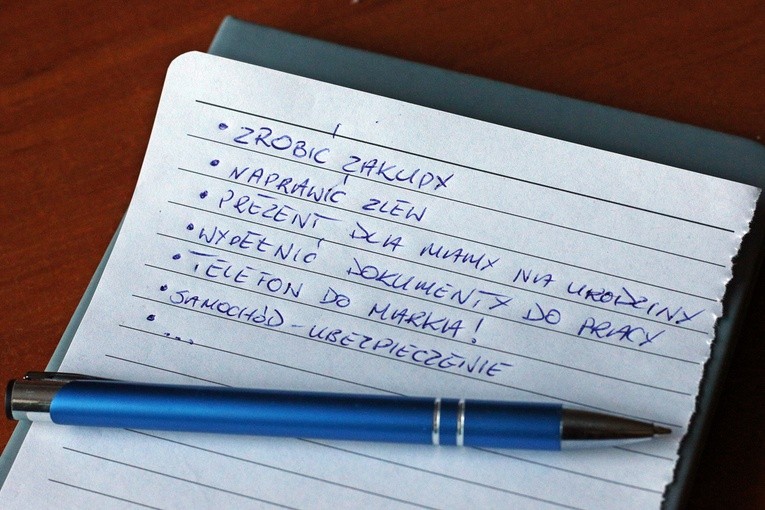 • ZROBIĆ ZAKUPY
• NAPRAWIĆ ZLEW
• PREZENT DLA MAMY NA URODZINY
• WYPEŁNIĆ DOKUMENTY DO PRACY
• TELEFON DO MARKA!
• SAMOCHÓD - UBEZPIECZENIE
• ...